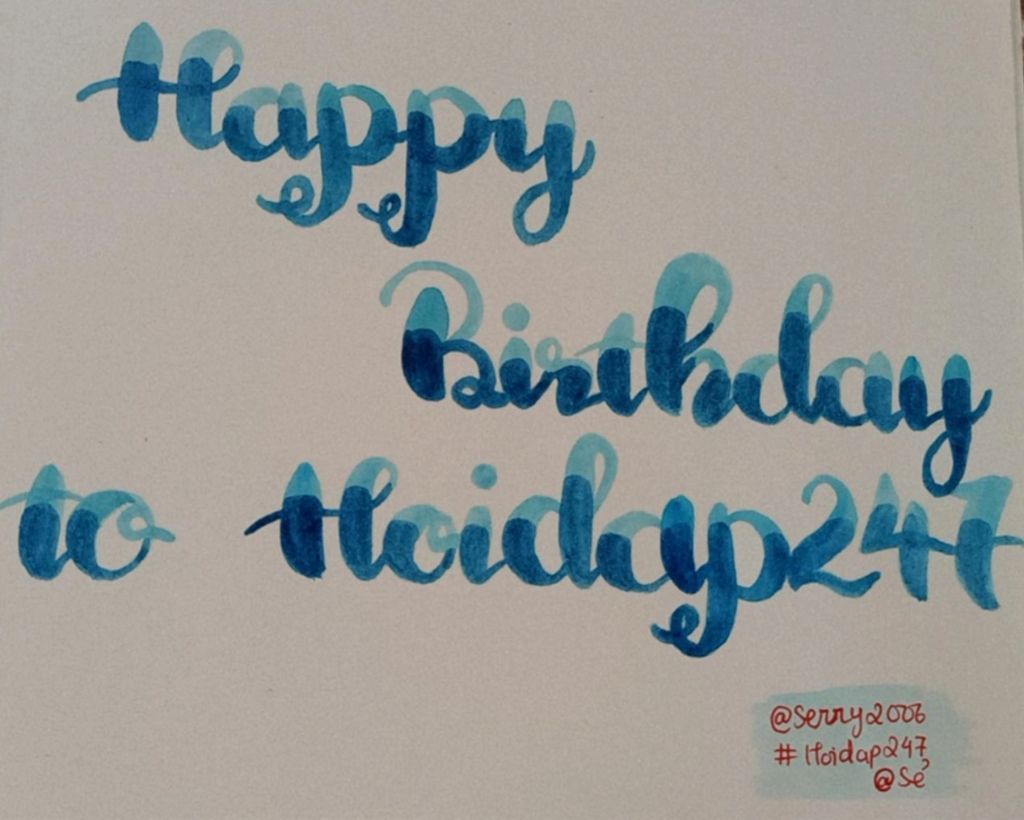 Happy
Birthday
to Hoidap247
@Serry2006
# Hoidap247
@Sé